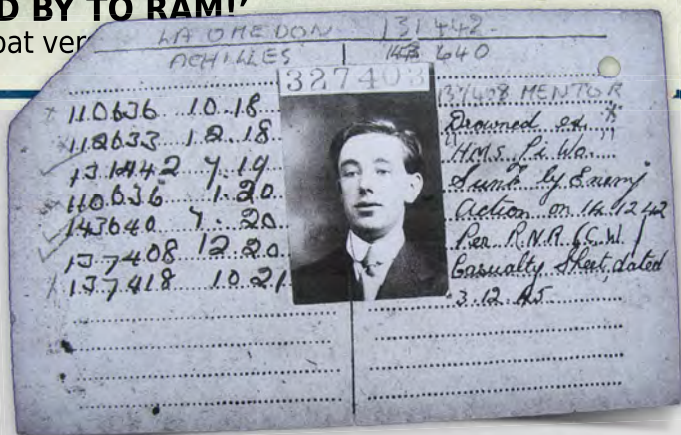 D BY TO RAM!’
oat ver
LAOMEDON 131442.
ACHILLES 143640
327403
137408 MENTOR
110636 10.18
112633 12.18
131442 7.19
110636 1.20
143640 7.20
137408 12.20
137418 10.21
Drowned ex
"H.M.S. Li Wo"
Sunk by Enemy
action on 14.12.42
Per R.N.R. (C.W.)
Casualty Sheet, dated
3.12.45